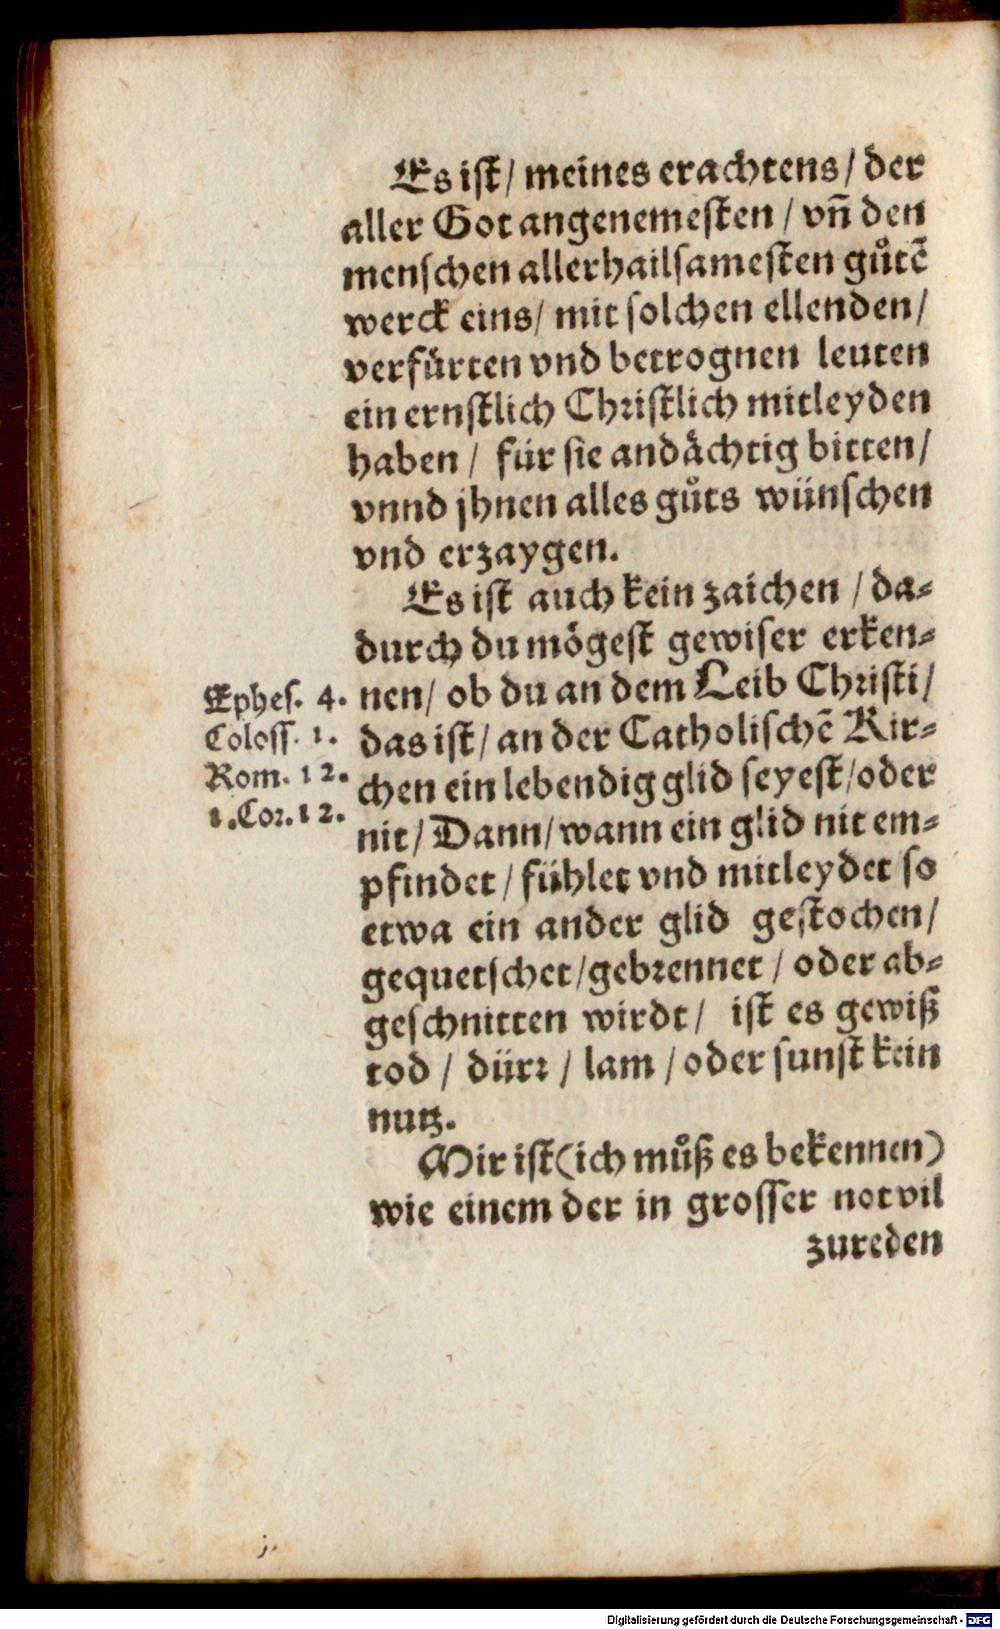 Es ist/ meines erachtens/ der
aller Got angenemesten/ vn̄ den
menschen allerhailsamesten gůtē
werck eins/ mit solchen ellenden/
verfürten vnd betrognen leuten
ein ernstlich Christlich mitleyden
haben/ für sie andächtig bitten/
vnnd jhnen alles gůts wünschen
vnd erzaygen.
Es ist auch kein zaichen/ da-
durch du mögest gewiser erken-
nen/ ob du an dem Leib Christi/
das ist/ an der Catholischē Kir-
chen ein lebendig glid seyest/ oder
nit/ Dann/ wann ein glid nit em-
pfindet/ fühlet vnd mitleydet so
etwa ein ander glid gestochen/
gequetschet/ gebrennet/ oder ab-
geschnitten wirdt/ ist es gewiß
tod/ dürr/ lam/ oder sunst kein
nutz.
Mir ist (ich můß es bekennen)
wie einem der in grosser not vil
zureden
Ephes. 4.
Coloss. 1.
Rom. 12.
1. Cor. 12.
Digitalisierung gefördert durch die Deutsche Forschungsgemeinschaft - DFG